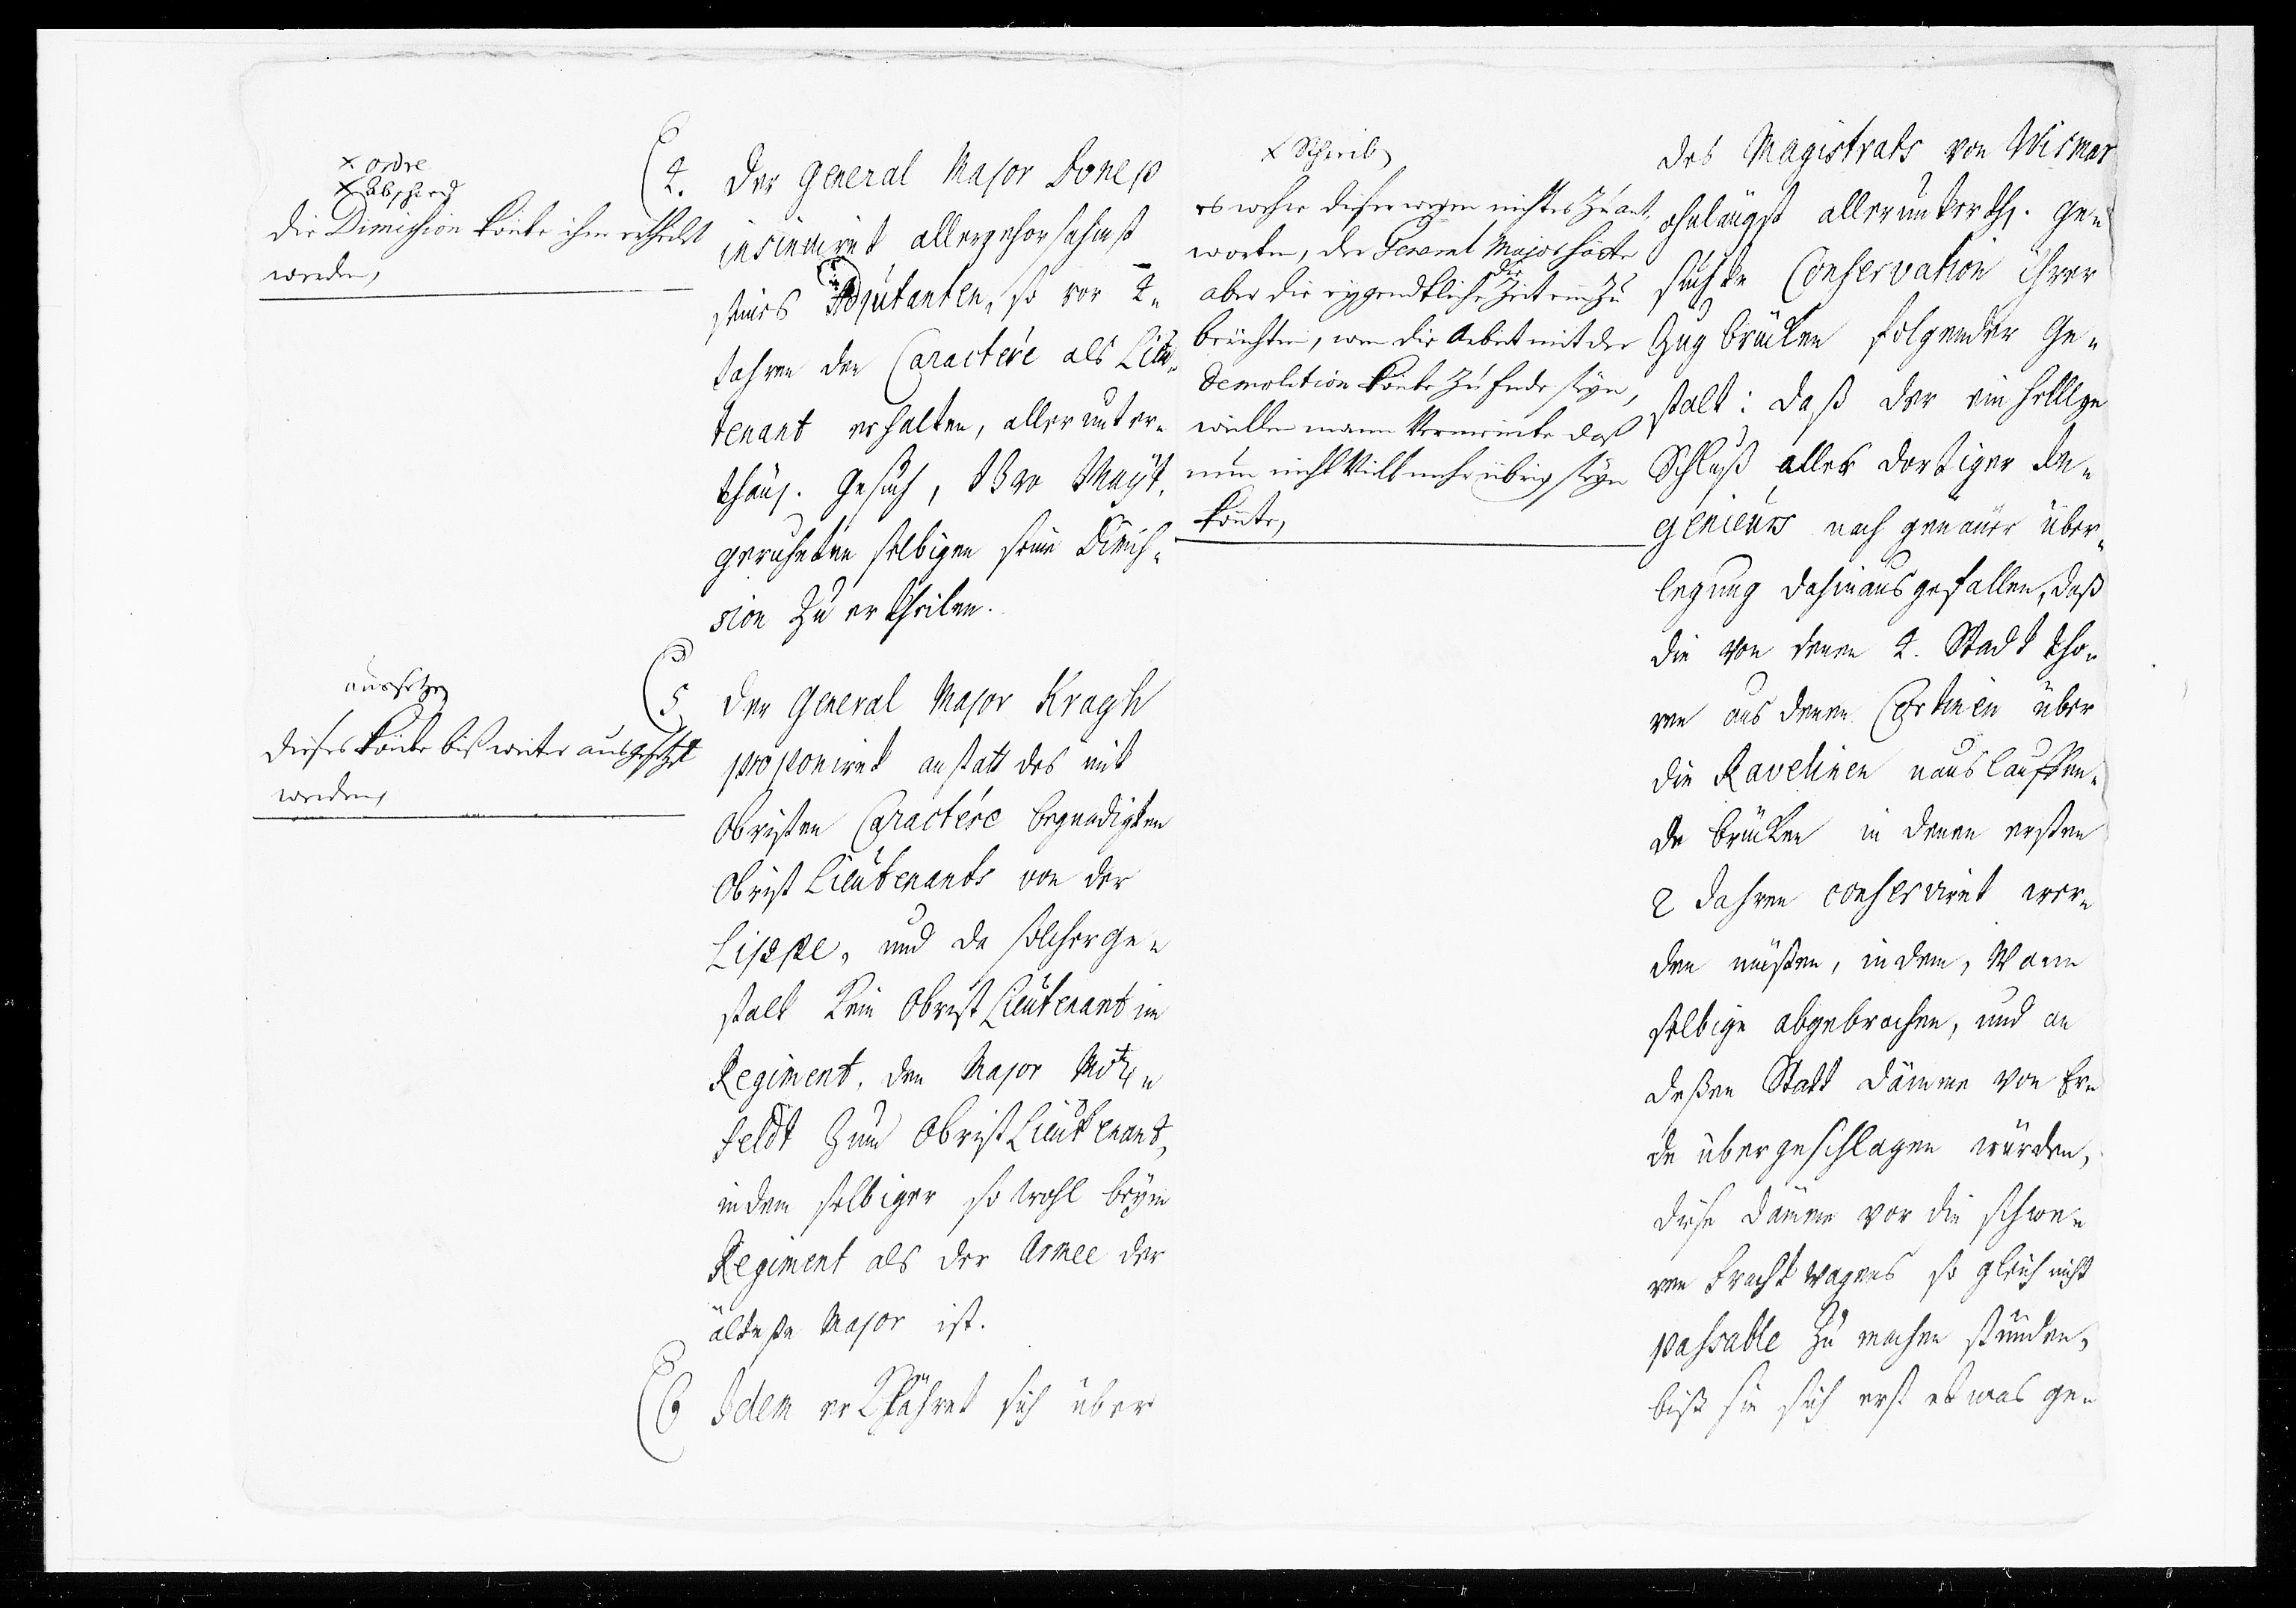 x ordre
x Abscheed
Die Dimission könte ihm ertheilet
werden,
4. Der General Major Donep
insinuiret allergehorsahmst
seines Adjutanten, so vor 4„
Jahren den Caractére als Lieu„
tenant erhalten, allerunter„
thänj. Gesuch, Ewr Mayt.
geruheten selbigen seine Dimis„
sion zu ertheilen.
aussetzen
Dieses könte biß weiter ausgesetzet
werden,
5 Der General Major Kragh
proponiret anstatt des mit
Obristen Caractére begnadigten
Obrist Lieutenants von der
Lippe, und da solcherge„
stalt kein Obrist Lieutenant im
Regiment, den Major
feldt zum Obrist Lieutenant,
indem selbiger so wohl beym
Regiment als der Armee der
älteste Major ist.
6 Idem erklähret sich über
x Schreib
es wehre dieserwegen nichtes zu ant„
worten, der General Major hätte
aber die eygendtliche Zeit ein zu
die
berichten, wen die Arbeit mit der
Demolition könte zu Ende seyn,
weillen mann Vermeinte daß
nun nicht Viell mehr übrig seyn
könte,
des Magistrats von Wismar
ohnlängst allerunterthj. ge„
suchte Conservation ihrer
Zugbrücken folgender Ge„
stalt: daß der einhellige
Schluß aller dortiger In„
genieurs nach genauer über„
legung dahinaus gefallen, daß
die von denen 4. Stadt Tho„
ren aus denen Cortinen über
die Ravelinen nauslauffen„
de brücken in denen ersten
2 Jahren conserviret wer„
den müsten, indem, Wann
selbige abgebrochen, und an
deßen Statt Dämme von Er„
de übergeschlagen würden,
diese Dämme vor die schwe„
ren Frachtwagens so gleich nicht
passable zu machen stünden,
biß sie sich erst etwas ge„